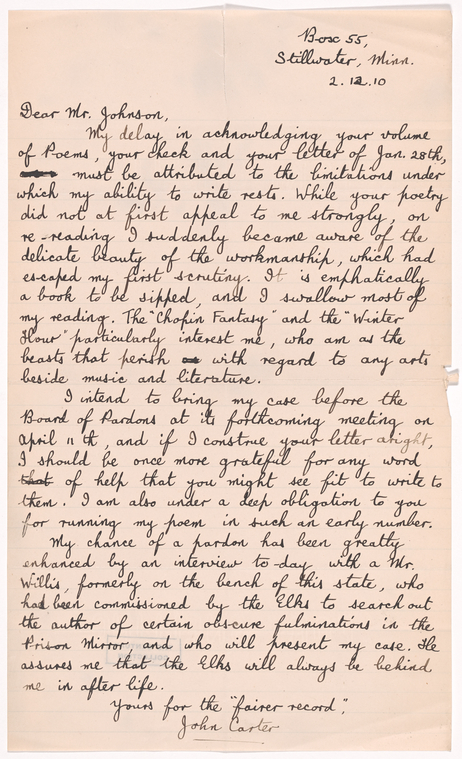 Box 55,
Stillwater, Minn.
2.12.10
Dear Mr. Johnson,
My delay in acknowledging your volume
of Poems, your check and your letter of Jan. 28th,
must be attributed to the limitations under
which my ability to write rests. While your poetry
did not at first appeal to me strongly, on
re-reading I suddenly became aware of the
delicate beauty of the workmanship, which had
escaped my first scrutiny. It is emphatically
a book to be sipped, and I swallow most of
my reading. The "Chopin Fantasy" and the "Winter
Hour" particularly interest me, who am as the
beasts that perish with regard to any arts
beside music and literature.
I intend to bring my case before the
Board of Pardons at its forthcoming meeting on
April 11th, and if I construe your letter aright,
I should be once more grateful for any word
that of help that you might see fit to write to
them. I am also under a deep obligation to you
for running my poem in such an early number.
My chance of a pardon has been greatly
enhanced by an interview to-day with a Mr.
Willis, formerly on the bench of this state, who
had been commissioned by the Elks to search out
the author of certain obscure fulminations in the
Prison Mirror, and who will present my case. He
assures me that the Elks will always be behind
me in after life.
Yours for the "fairer record",
John Carter